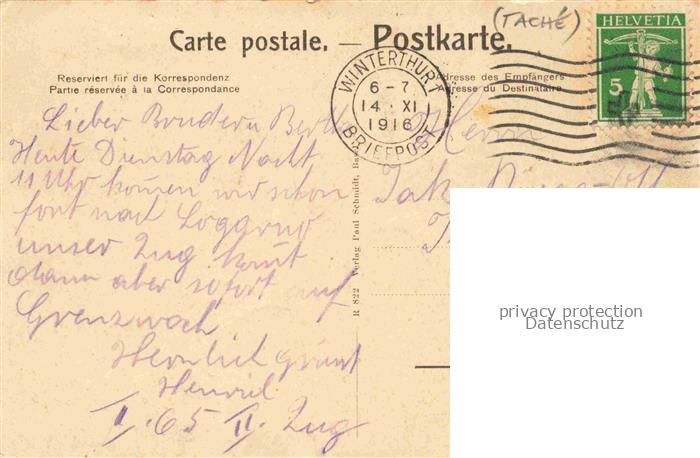 (TACHÉ)
Carte postale. — Postkarte.
HELVETIA
5
WINTERTHUR 1
6-7
14. XI
1916
BRIEFPOST
Reserviert für die Korrespondenz
Partie réservée à la Correspondance
Adresse des Empfängers
Adresse du Destinataire
Lieber Brudern Bertha
Heute Dienstag Nacht
11 Uhr kommen wir schon
fort nach Loggarno
unser Zug kommt
dann aber sofort auf
Grenzwach
Herzlich grüsst
Heinrich
I/65 II. Zug
R 822 Verlag Paul Schmidt,
Herrn
Jak.
privacy protection
Datenschutz